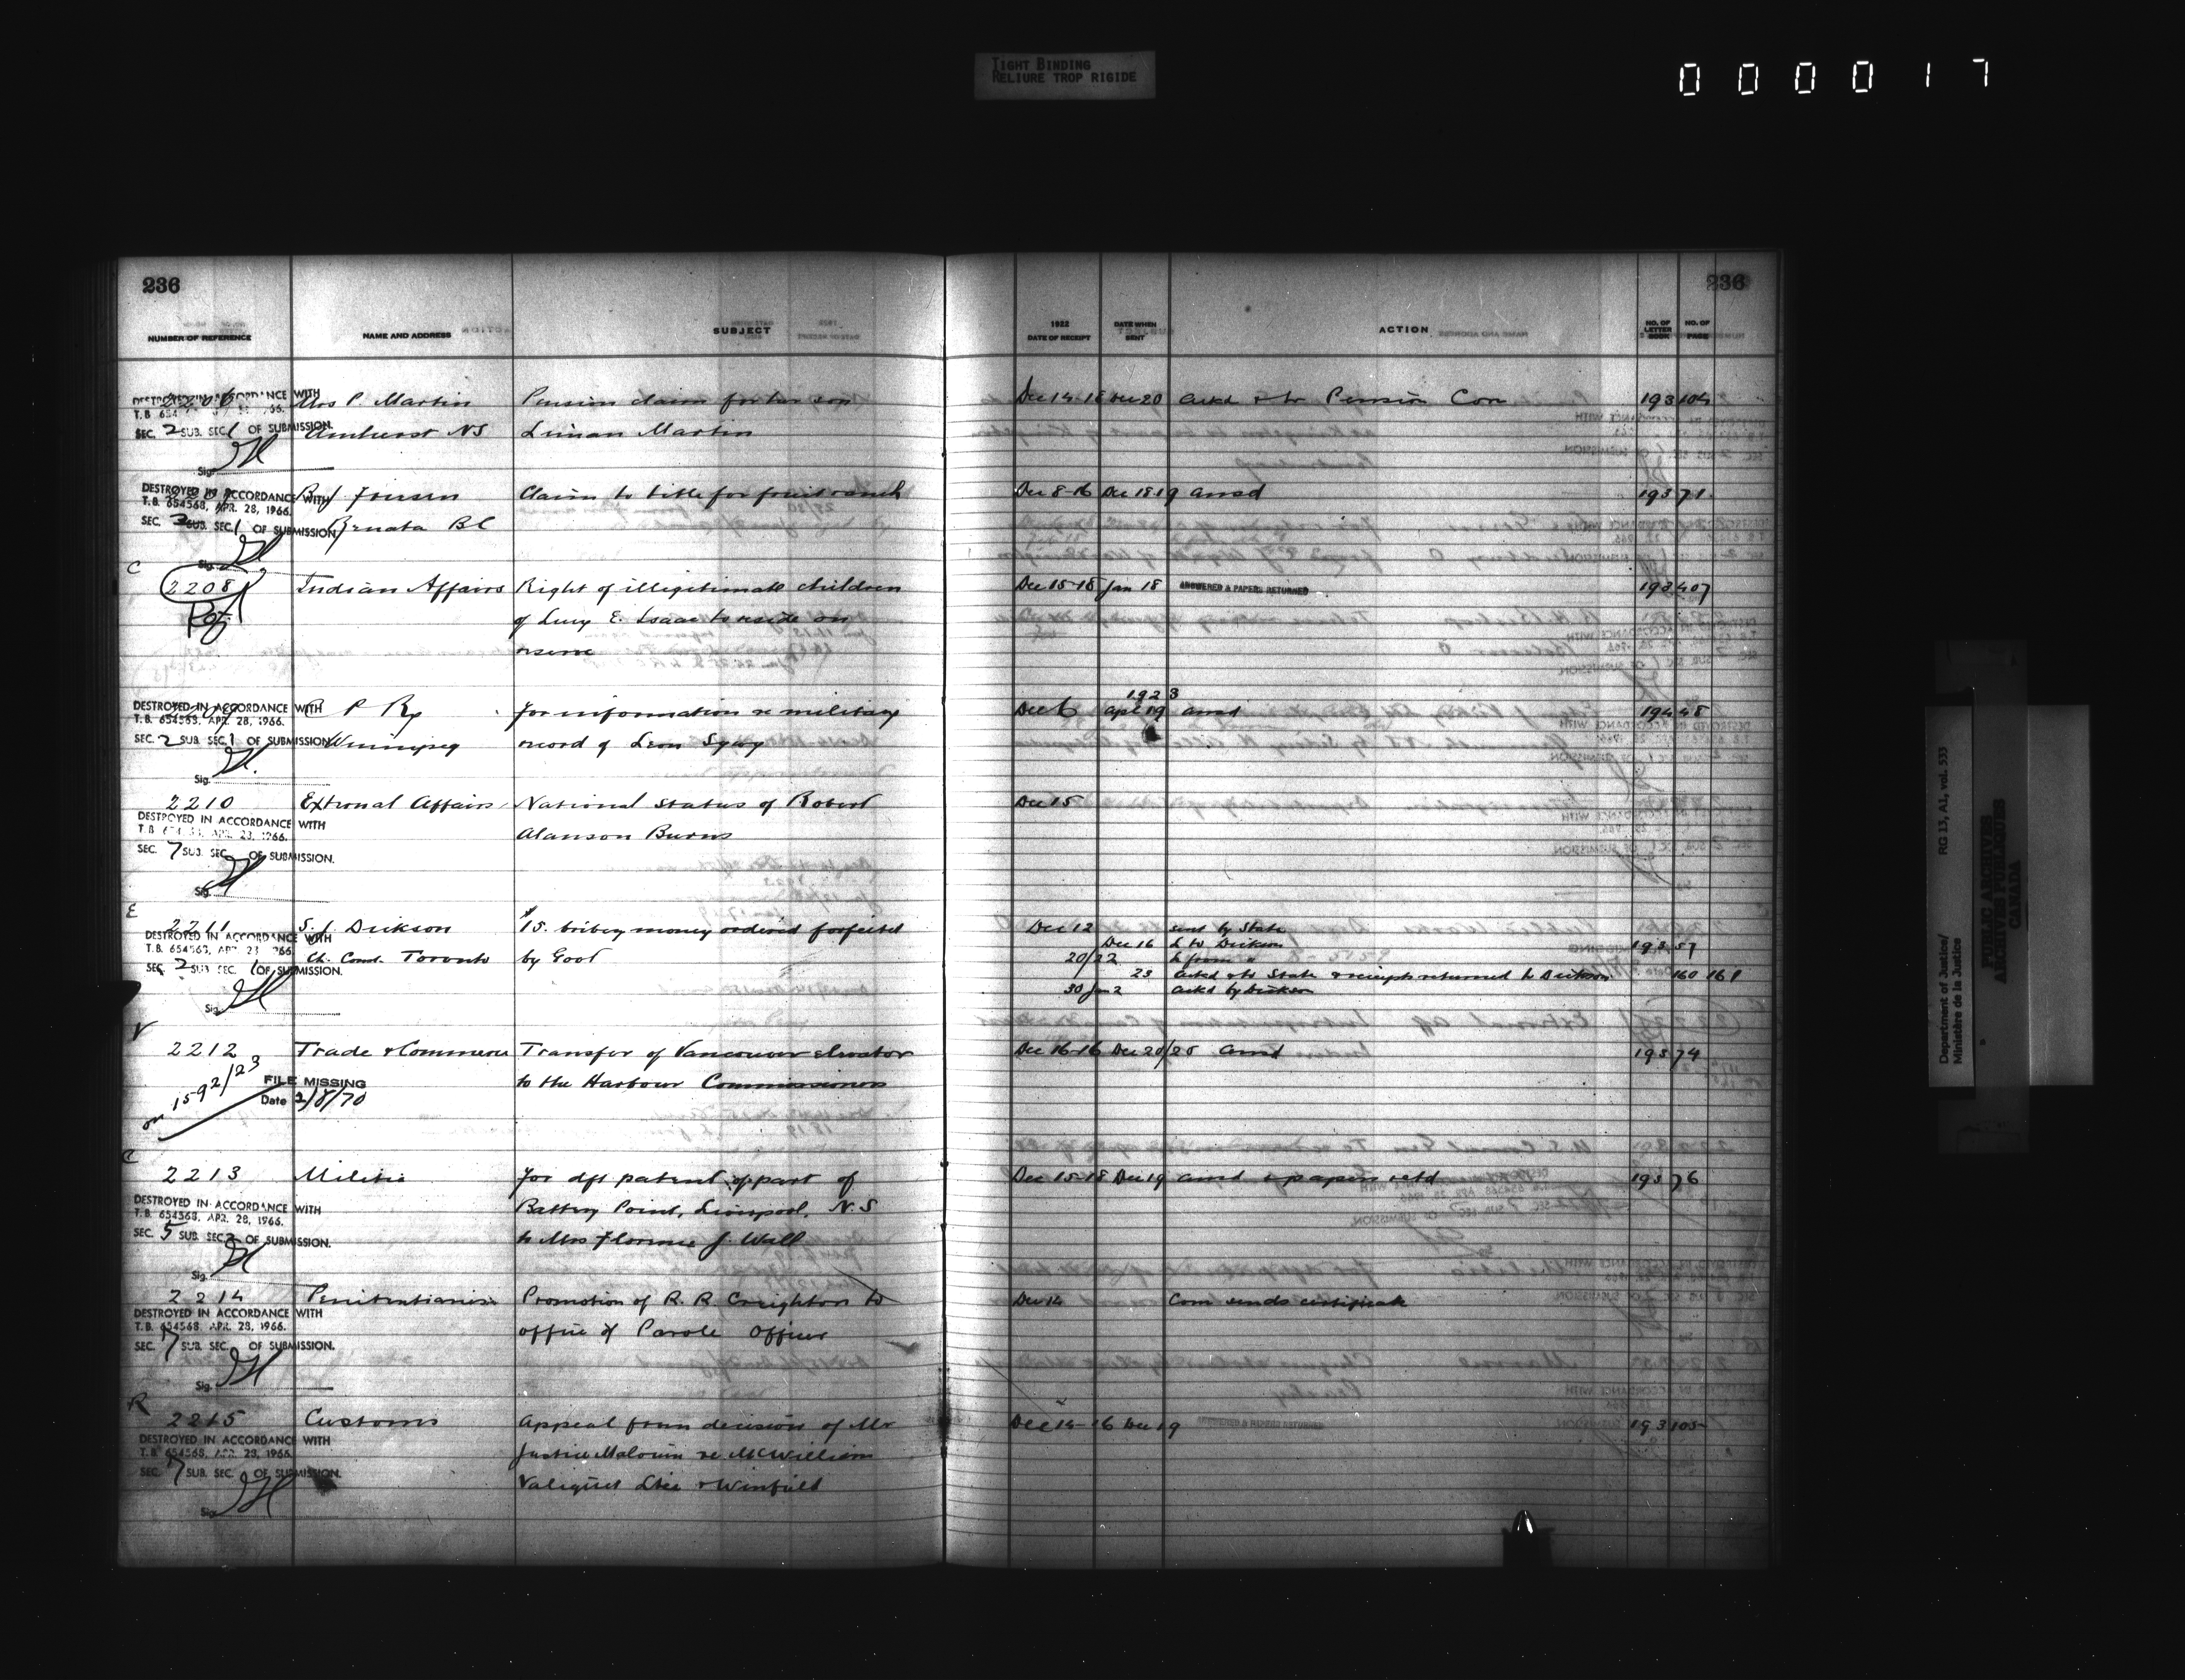 TIGHT BINDING
RELIURE TROP RIGIDE
000017
236
236
NUMBER OF REFERENCE
NAME AND ADDRESS
SUBJECT
1922
DATE OF RECEIPT
DATE WHEN SENT
ACTION
NO. OF LETTER BOOK
NO. OF PAGE
DESTROYED IN ACCORDANCE WITH
Mrs P. Martin
Pension claim for her son
Dec 14-18 Dec 20 ackd & to Pension Com
193 104
SEC. 2 SUB. SEC. 1 OF SUBMISSION.
Amherst NS
Liman Martin
Sig.
DESTROYED IN ACCORDANCE WITH
T.B. 654568, APR. 28, 1966.
Claim to title for fruit ranch
Dec 8-16 Dec 18 19 ansd
193 71
SEC. 2 SUB. SEC. 1 OF SUBMISSION.
Renata BC
Sig.
C
2208
Indian Affairs
Right of illegitimate children
Dec 15-18 Jan 18
ANSWERED & PAPERS RETURNED
193 407
of Lucy E. Isaac to reside on
reserve
DESTROYED IN ACCORDANCE WITH
T.B. 654568, APR. 28, 1966.
C P Ry
for information re military
1923
Dec 6 Apl 19 ansd
194 48
SEC. 2 SUB. SEC. 1 OF SUBMISSION.
Winnipeg
record of Leon
Sig.
2210
External Affairs
National status of Robert
Dec 15
DESTROYED IN ACCORDANCE WITH
Alanson Burns
SEC. 7 SUB. SEC. OF SUBMISSION.
Sig.
E
2211
S. J. Dickson
$15. bribery money ordered forfeited
Dec 12 sent by State
DESTROYED IN ACCORDANCE WITH
Ch. Const. Toronto
by Govt
Dec 16 L to Dickson
193 57
20/22 L from "
SEC. 2 SUB. SEC. 1 OF SUBMISSION.
23 ackd & to State & receipt returned to Dickson
160 161
30 Jan 2 ackd by Dickson
Sig.
V
2212
Trade & Commerce
Transfer of Vancouver elevator
Dec 16-16 Dec 20/20 ansd
193 74
to the Harbour Commissioners
on 1592/23
FILE MISSING
Date 2/8/70
C
2213
Militia
for dft patent of part of
Dec 15-18 Dec 19 ansd & papers retd
193 76
DESTROYED IN ACCORDANCE WITH
T.B. 654568, APR. 28, 1966.
Battery Point, Liverpool, N.S
SEC. 5 SUB. SEC. 2 OF SUBMISSION.
to Mrs Florence J. Wall
Sig.
2214
Penitentiaries
Promotion of R. R. Creighton to
Dec 14
Com sends certificate
DESTROYED IN ACCORDANCE WITH
T.B. 654568, APR. 28, 1966.
office of Parole Officer
SEC. 7 SUB. SEC. OF SUBMISSION.
Sig.
R
2215
Customs
Appeal from decision of Mr
Dec 14-16 Dec 19
ANSWERED & PAPERS RETURNED
193 105
DESTROYED IN ACCORDANCE WITH
T.B. 654568, APR. 28, 1966.
Justice Malouin re McWilliam
SEC. 7 SUB. SEC. OF SUBMISSION.
Valiquet Ltee & Winfield
Sig.
Department of Justice/
Ministère de la Justice
RG 13, A1, vol. 533
PUBLIC ARCHIVES
ARCHIVES PUBLIQUES
CANADA